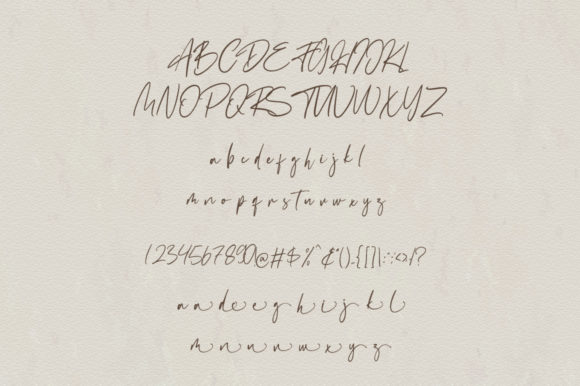 ABCDEFGHIJKL
MNOPQRSTUVWXYZ
a b c d e f g h i j k l
m n o p q r s t u v w x y z
1234567890@#$%^&*()-{[]|:;<>/?
a a d e e g h i j k l
m n n u w x y z